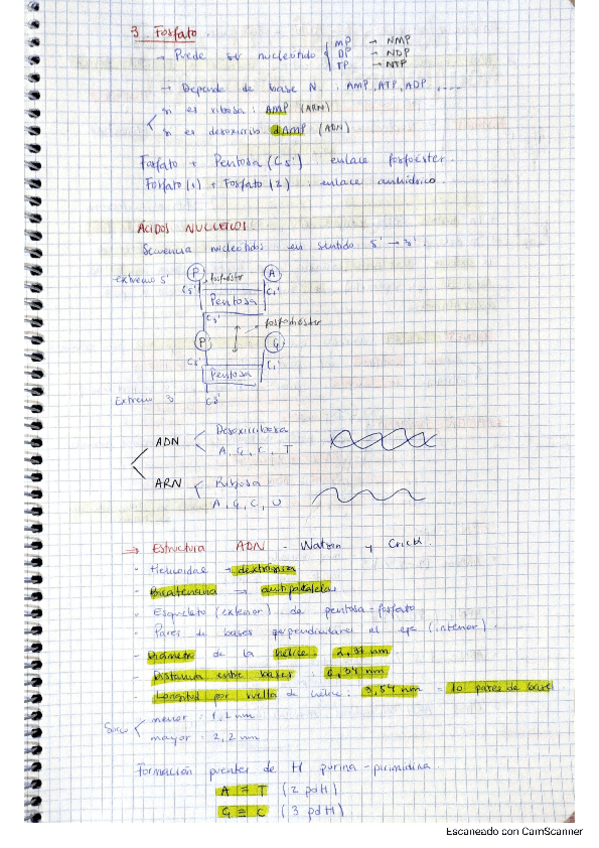 3. Fosfato.
→ Puede ser nucleótido { MP → NMP
DP → NDP
TP → NTP
→ Depende de base N. AMP, ATP, ADP, ....
si es ribosa: AMP (ARN)
si es desoxirrib. dAMP (ADN)
Fosfato + Pentosa (C5') enlace fosfoéster.
Fosfato (1) + Fosfato (2) enlace anhídrico.
ÁCIDOS NUCLEICOS.
Secuencia nucleótidos en sentido 5' → 3'.
extremo 5' P fosfoéster A
C5' Pentosa C1'
C3' fosfodiéster
P G
C5' Pentosa C1'
Extremo 3 C3'
ADN < Desoxirribosa
A, G, C, T
ARN < Ribosa
A, G, C, U
⇒ Estructura ADN - Watson y Crick.
- Helicoidal →
- Bicatenaria ⇒ antiparalelas
- Esqueleto (exterior) de pentosa-fosfato
- Pares de bases perpendiculares al eje (interior).
- Diámetro de la hélice: 2,37 nm
- Distancia entre bases: 0,34 nm
- Longitud por vuelta de hélice: 3,54 nm = 10 pares de bases
Surco < menor: 1,2 nm
mayor: 2,2 nm
Formación puentes de H purina-pirimidina.
A = T (2 pdH)
G ≡ C (3 pdH)
Escaneado con CamScanner